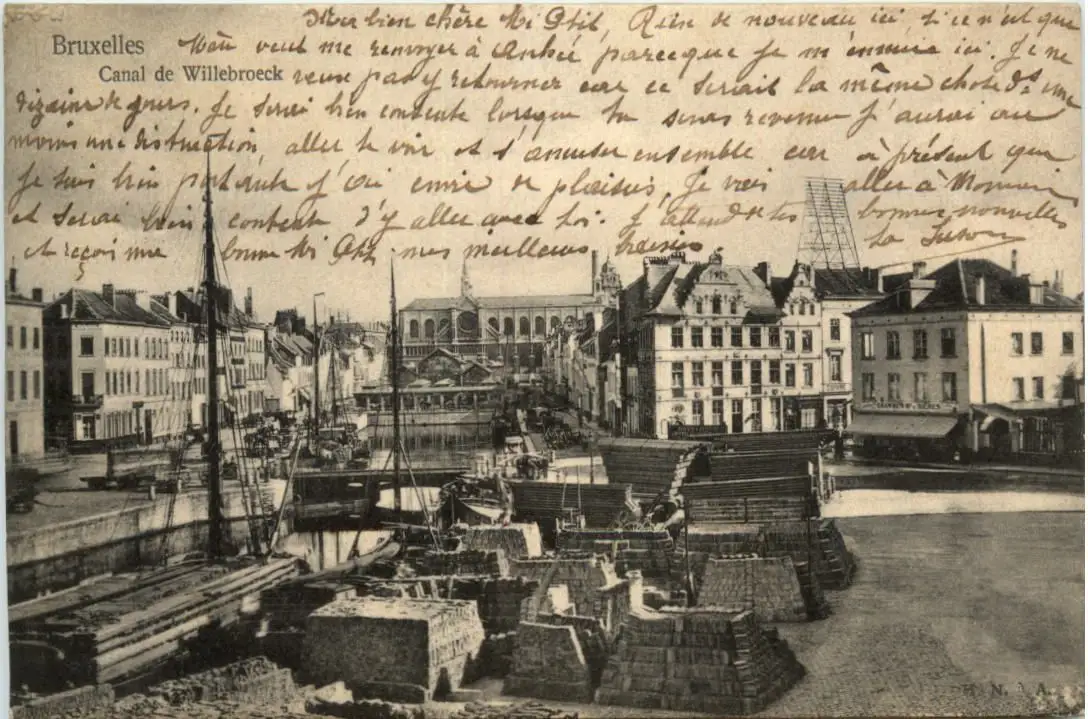 Ma bien chère Mi Ptit, Rien de nouveau ici si ce n'est que
Bruxelles
veut me renvoyer à parceque je m'ennuie ici. Je ne
Canal de Willebroeck
veux pas y retourner car ce serait la même chose ds une
dizaine de jours. Je serai bien contente lorsque tu seras revenue j'aurai au
moins une distraction, aller te voir et s'amuser ensemble car à présent que
je suis bien portante j'ai envie de plaisirs. Je vais aller à
et serai bien contente d'y aller avec toi. J'attends de tes bonnes nouvelles
et reçois ma bonne Mi Ptit mes meilleurs baisers
Ta
N. A.